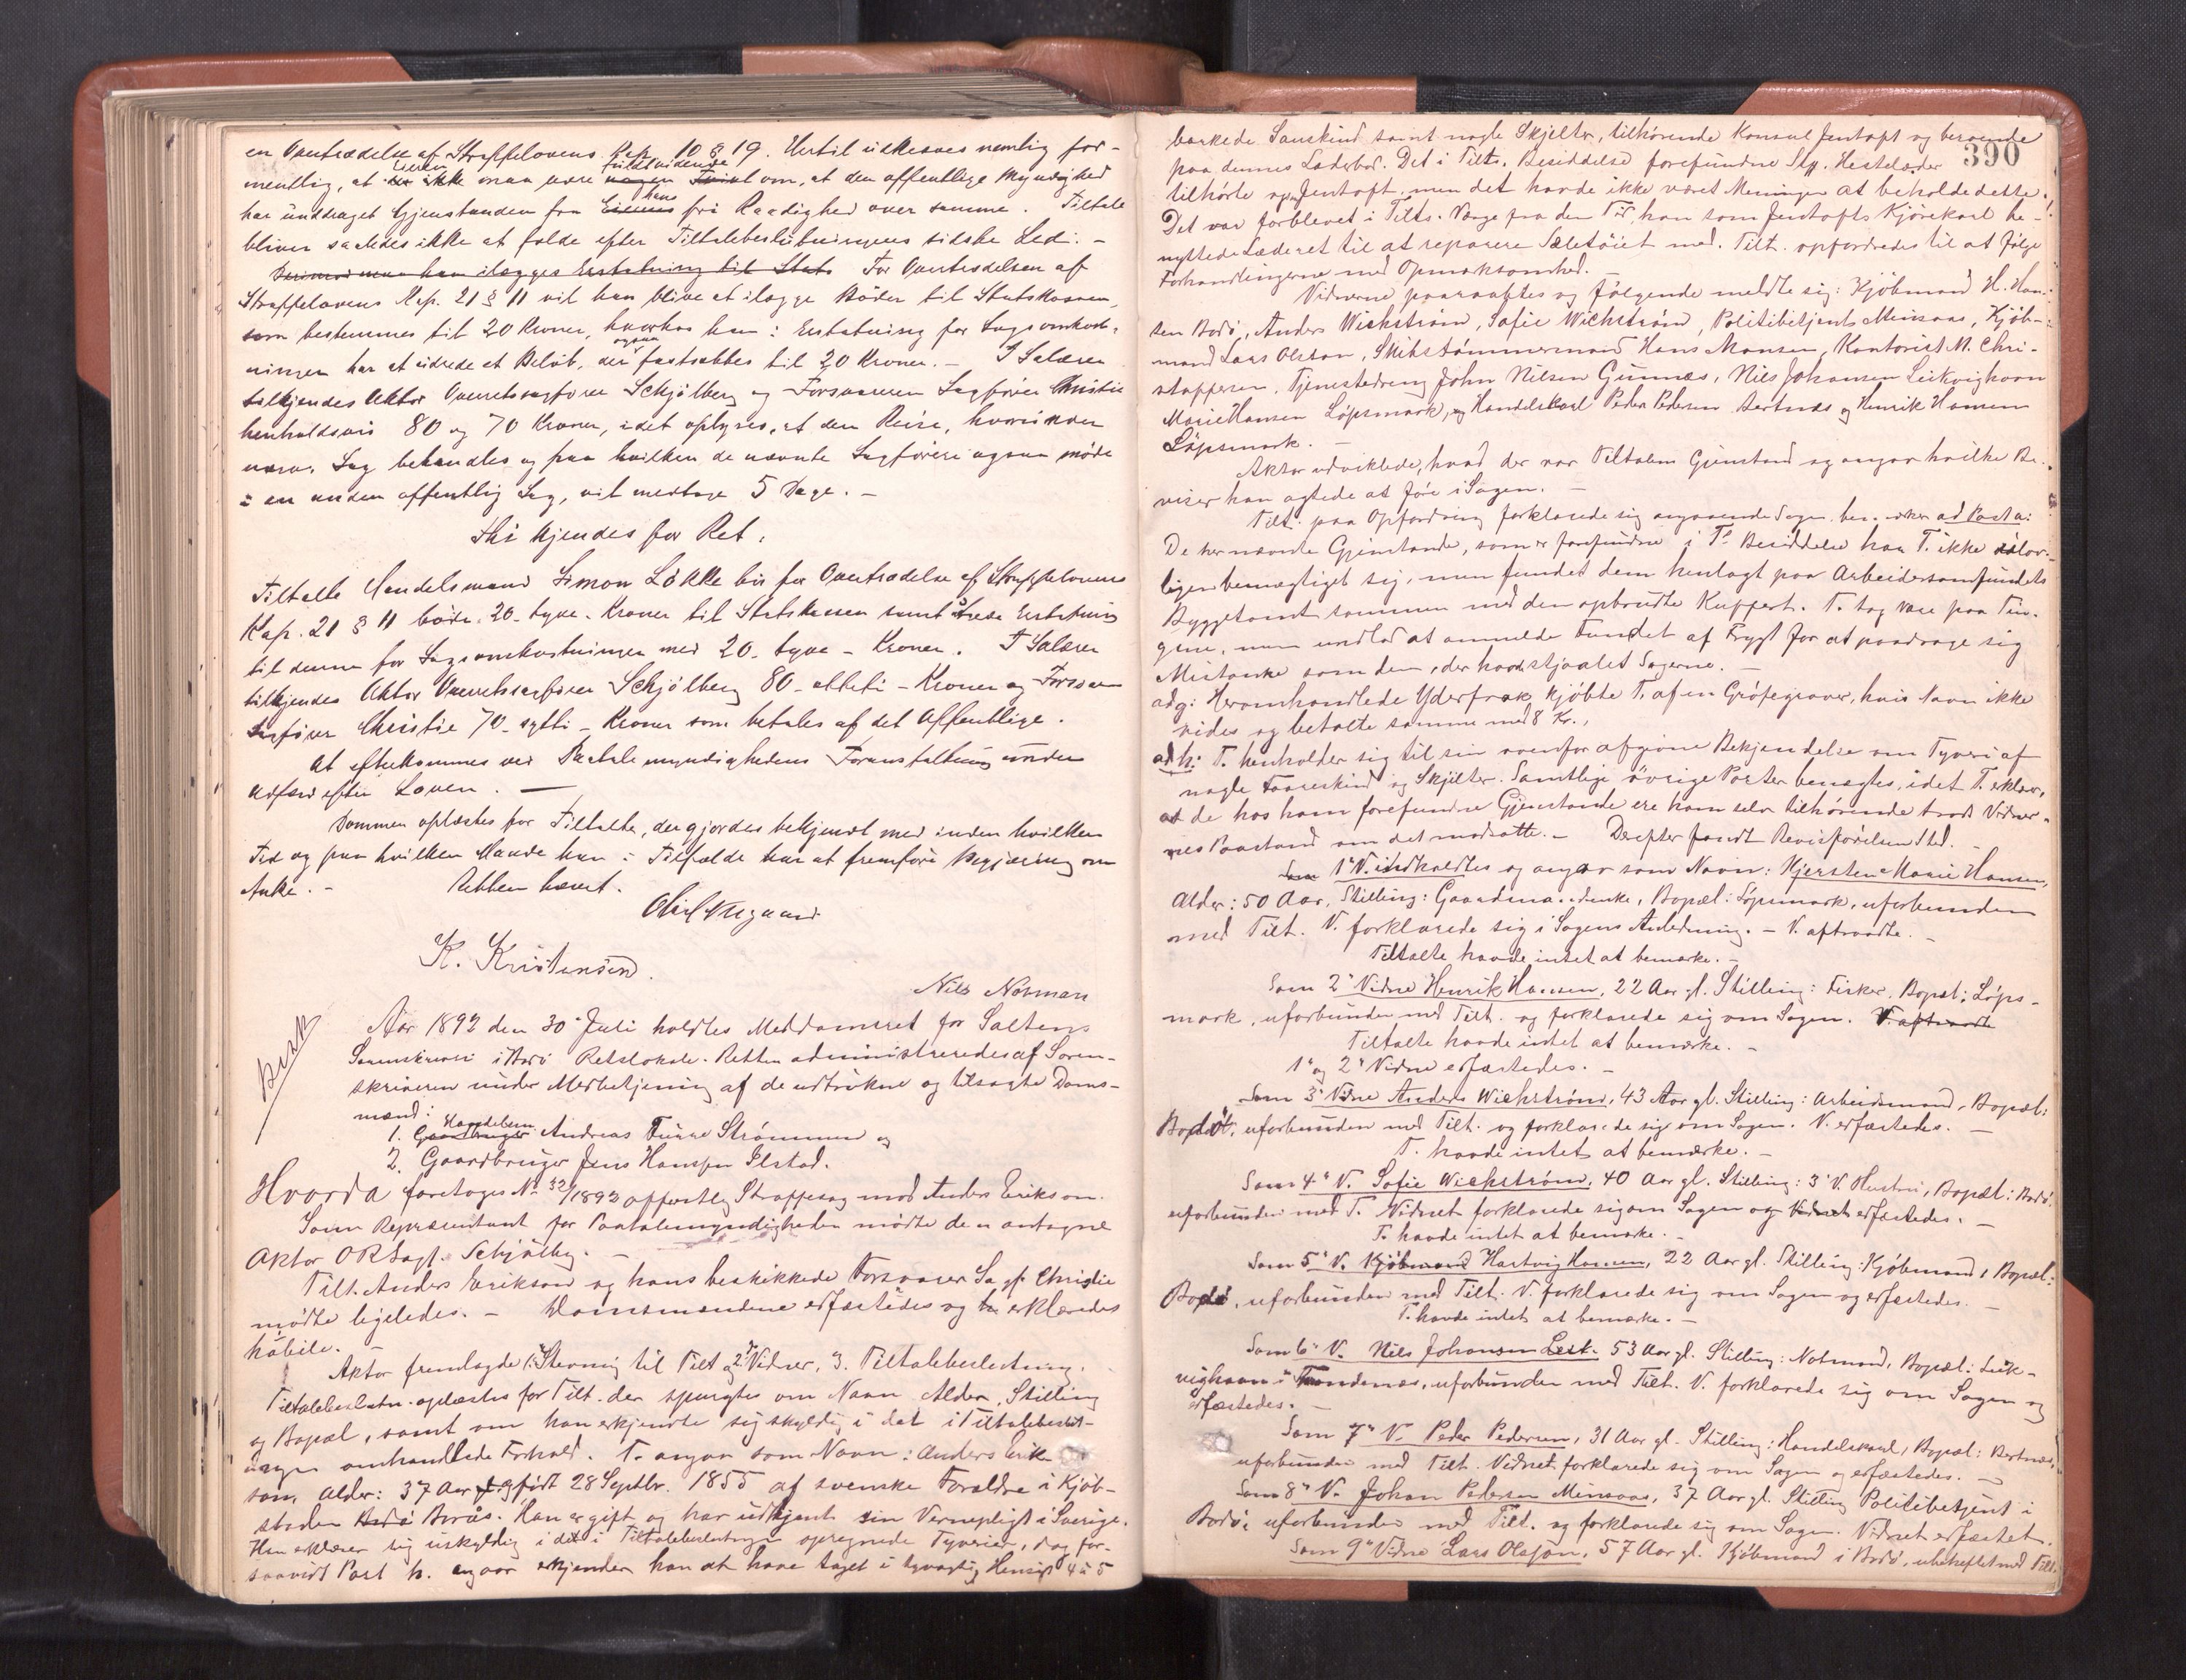 en Overtrædelse af Straffelovens Kap. 10 § 19. Hertil udkræves nemlig for-
mentlig, at ikke maa være om, at den offentlige Myndighed
har unddraget Gjenstanden fra hans fri Raadighed over samme. Tiltalte
bliver saaledes ikke at fælde efter Tiltalebeslutningens sidste Led. -
Derimod maa han ilægges Erstatning til Stats For Overtrædelsen af
Straffelovens Kap. 21 § 11 vil han blive at ilægge Bøder til Statskassen,
som bestemmes til 20 Kroner, hvorhos han i Erstatning for Sagsomkost-
ninger har at udrede et Beløb, der ogsaa fastsættes til 20 Kroner. - I Salærer
tilkjendes Aktor Overretssagfører Schjølberg og Forsvareren Sagfører Christie
henholdsvis 80 og 70 Kroner, idet oplyses, at den Reise, hvorunder
nærv. Sag behandles og paa hvilken de nævnte Sagførere ogsaa møde
i en anden offentlig Sag, vil medtage 5 Dage. -
Thi kjendes for Ret:
Tiltalte Handelsmand Simon Løkke bør for Overtrædelse af Straffelovens
Kap. 21 § 11 bøde 20 - tyve - Kroner til Statskassen samt udrede Erstatning
til denne for Sagsomkostninger med 20 - tyve - Kroner. I Salærer
tilkjendes Aktor Overretssagfører Schjølberg 80 - otteti - Kroner og Forsvar
Sagfører Christie 70 - sytti - Kroner som betales af det Offentlige.
At efterkommes ved Paatalemyndighedens Foranstaltning under
Adfærd efter Loven. -
Dommen oplæstes for Tiltalte, der gjordes bekjendt med inden hvilken
Tid og paa hvilken Maade han i Tilfælde har at fremføre Begjæring om
Anke. - Retten hævet.
K. Kristensen.
Nils Norman
Aar 1892 den 30' Juli holdtes Meddomsret for Saltens
Sorenskriveri i Bodø Retslokale. Retten administreredes af Soren-
skriveren under Medbetjening af de udtrukne og tilsagte Doms-
mænd:
1. Gaardbruger Handelsm. Andreas Strømmen og
2. Gaardbruger Jens Hansen Ilstad.
Hvorda foretoges No 32/1892 offentlig Straffesag mod Anders Erikson.
Som Repræsentant for Paatalemyndigheden mødte den antagne
Aktor ORSagf. Schjølbg. -
Tilt. Anders Erikson og hans beskikkede Forsvarer Sagf. Christie
mødte ligeledes. - Domsmændene edfæstedes og erklæredes
habile. -
Aktor fremlagde 1. Stevning til Tilt og 2. Vidner, 3. Tiltalebeslutning.
Tiltalebeslutn. oplæstes for Tilt. der spurgtes om Navn Alder, Stilling
og Bopæl, samt om han erkjendte sig skyldig i det i Tiltalebeslut-
ningen omhandlede Forhold. T. angav som Navn: Anders Erik-
son, Alder: 37 Aar født 28 Septbr. 1855 af svenske Forældre i Kjøb-
staden Borås. Han er gift og har udtjent sin Vernepligt i Sverige.
Han erklærer sig uskyldig i det i Tiltalebeslutningen opregnede Tyverier, dog for-
saavidt Post h. angaar erkjender han at have taget i tyvagtig Hensigt 4 à 5
390
barkede Saueskind samt nogle Skjelter, tilhørende Konsul Jentoft og beroende
paa dennes Laderbod. Det i Tilts. Besiddelse forefundne Stk. Hestelæder
tilhørte og Jentoft, men det havde ikke været Meningen at beholde dette.
Det var forblevet i Tilts. Værge fra den Tid, han som Jentofts Kjørekarl be-
nyttede Læderet til at reparere Seletøiet med. Tilt. opfordredes til at følge
Forhandlingerne med Opmærksomhed.
Vidnerne paaraabtes og følgende meldte sig: Kjøbmand H. Han-
sen Bodø, Anders Wickstrøm, Sofie Wickstrøm, Politibetjent Minsaas, Kjøb-
mand Lars Olsson, Skibstømmermand Hans Monsen, Kontorist M. Chri-
stoffersen, Tjenestedreng John Nilsen Gunnæs, Nils Johansen Leikvighavn
Marie Hansen Løpsmark, og Handelskarl Peder Pedersen Bertnæs og Henrik Hansen
Løpsmark. -
Aktor udviklede, hvad der var Tiltalens Gjenstand og angav hvilke Be-
viser han agtede at føre i Sagen. -
Tilt. paa Opfordring forklarede sig angaaende Sagen bemærker ad Post a:
De her nævnte Gjenstande, som er forefundne i T's Besiddelse har T. ikke ulov-
ligen bemægtiget sig, men fundet dem henlagt paa Arbeidersamfundets
Byggetomt sammen med den opbrudte Kuffert. T. tog vare paa Tin-
gene, men undlod at anmelde Fundet af Frygt for at paadrage sig
Mistanke som den, der havde stjaalet Sagerne. -
ad g: Heromhandlede Yderfrak kjøbte T. af en Grøftegraver, hvis Navn ikke
vides og betalte samme med 8 Kr.,
ad h: T. henholder sig til sin ovenfor afgivne Bekjendelse om Tyveri af
nogle Faareskind og Skjelter. Samtlige øvrige Poster benægtes, idet T. erklær.
at de hos ham forefundne Gjenstande ere ham selv tilhørende trods Vidner-
nes Paastand om det modsatte. - Derefter fandt Bevisførelsen Sted. -
Som 1' V. indkaldtes og angav som Navn: Kjersten Marie Hansen,
Alder: 50 Aar, Stilling: Gaardmandsenke, Bopæl: Løpsmark, uforbunden
med Tilt. V. forklarede sig i Sagens Anledning. - V. aftraadte. -
Tiltalte havde intet at bemærke. -
Som 2' Vidne Henrik Hansen, 22 Aar gl. Stilling: Fisker. Bopæl: Løps-
mark, uforbunden med Tilt. og forklarede sig om Sagen. V. aftraadte
Tiltalte havde intet at bemærke. -
1' og 2' Vidne edfæstedes. -
Som 3' Vidne Anders Wickstrøm, 43 Aar gl. Stilling: Arbeidsmand, Bopæl:
Bodø, uforbunden med Tilt. og forklarede sig om Sagen. V. edfæstedes. -
T. havde intet at bemærke. -
Som 4' V. Sofie Wickstrøm, 40 Aar gl. Stilling: 3' V. Hustru, Bopæl: Bodø.
uforbunden med T. Vidnet forklarede sig om Sagen og Vidnet edfæstedes. -
T. havde intet at bemærke. -
Som 5' V. Kjøbmand Hartvig Hansen, 22 Aar gl. Stilling: Kjøbmand, Bopæl:
Bodø, uforbunden med Tilt. V. forklarede sig om Sagen og edfæstedes. -
T. havde intet at bemærke. -
Som 6' V. Nils Johansen Leik. 53 Aar gl. Stilling: Notmand, Bopæl: Leik-
vighavn i Trondenæs, uforbunden med Tilt. V. forklarede sig om Sagen og
edfæstedes. -
Som 7' V. Peder Pedersen, 31 Aar gl. Stilling: Handelskarl, Bopæl: Bertnæs,
uforbunden med Tilt. Vidnet forklarede sig om Sagen og edfæstedes. -
Som 8' V. Johan Pedersen Minsaas, 37 Aar gl. Stilling Politibetjent i
Bodø, uforbunden med Tilt. og forklarede sig om Sagen. Vidnet edfæstet.
Som 9' Vidne Lars Olsson, 57 Aar gl. Kjøbmand i Bodø, ubeheftet med Tilt.